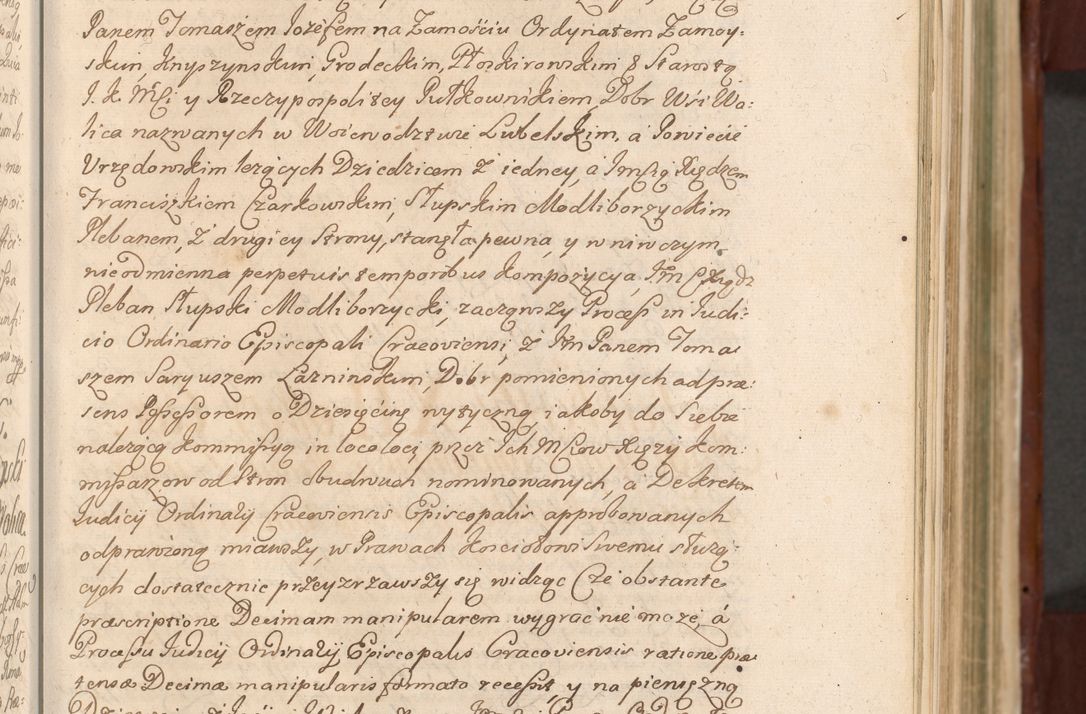 Panem Tomaszem Iozefem na Zamośćiu Ordynatem Zamoy:
skim, Knyszynskim, Grodeckim, Płoskirowskim & Starostą
J. K. Mści y Rzeczypospolitey Pułkownikiem, Dobr Wsi Wo:
lica nazwanych w Woiewodztwie Lubelskim, a Powiecie
Urzędowskim leżących Dziedzicem z iedney, a Jmśćią Xiędzem
Franciszkiem Czarkowskim, Słupskim Modliborzyckim
Plebanem, z drugiey strony, stanęła pewna, y w niwczym
nieodmienna perpetuis temporibus kompozycya, JM Xiądz
Pleban Słupski Modliborzycki, zacząwszy Process in Judi:
cio Ordinario Episcopali Cracoviensi, z Jm Panem Toma
szem Saryuszem Łaźninskim, Dobr pomienionych ad præ:
sens Possessorem o Dziesięćinę wytyczną, iakoby do siebie
należącą kommissyą in loco loci przez Ich Mściow Xięży Kom:
missarzow od stron obudwuch nominowanych, a Dekretem
Judicij Ordinarij Cracoviensis Episcopalis approbowanych
odprawioną miawszy, w Prawach Kosciołowi swemu służą:
cych dostatecznie przeyzrzawszy się widząc że obstante
præscriptione Decimam manipularem wygrać nie może, á
Processu Judicij Ordinarij Episcopalis Cracoviensis ratione præ
tensæ Decimæ manipularis formato recessit, y na pieniężną